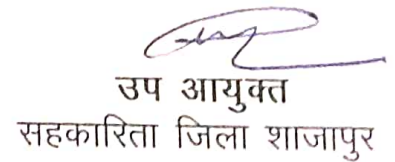 उप आयुक्त
सहकारिता जिला शाजापुर